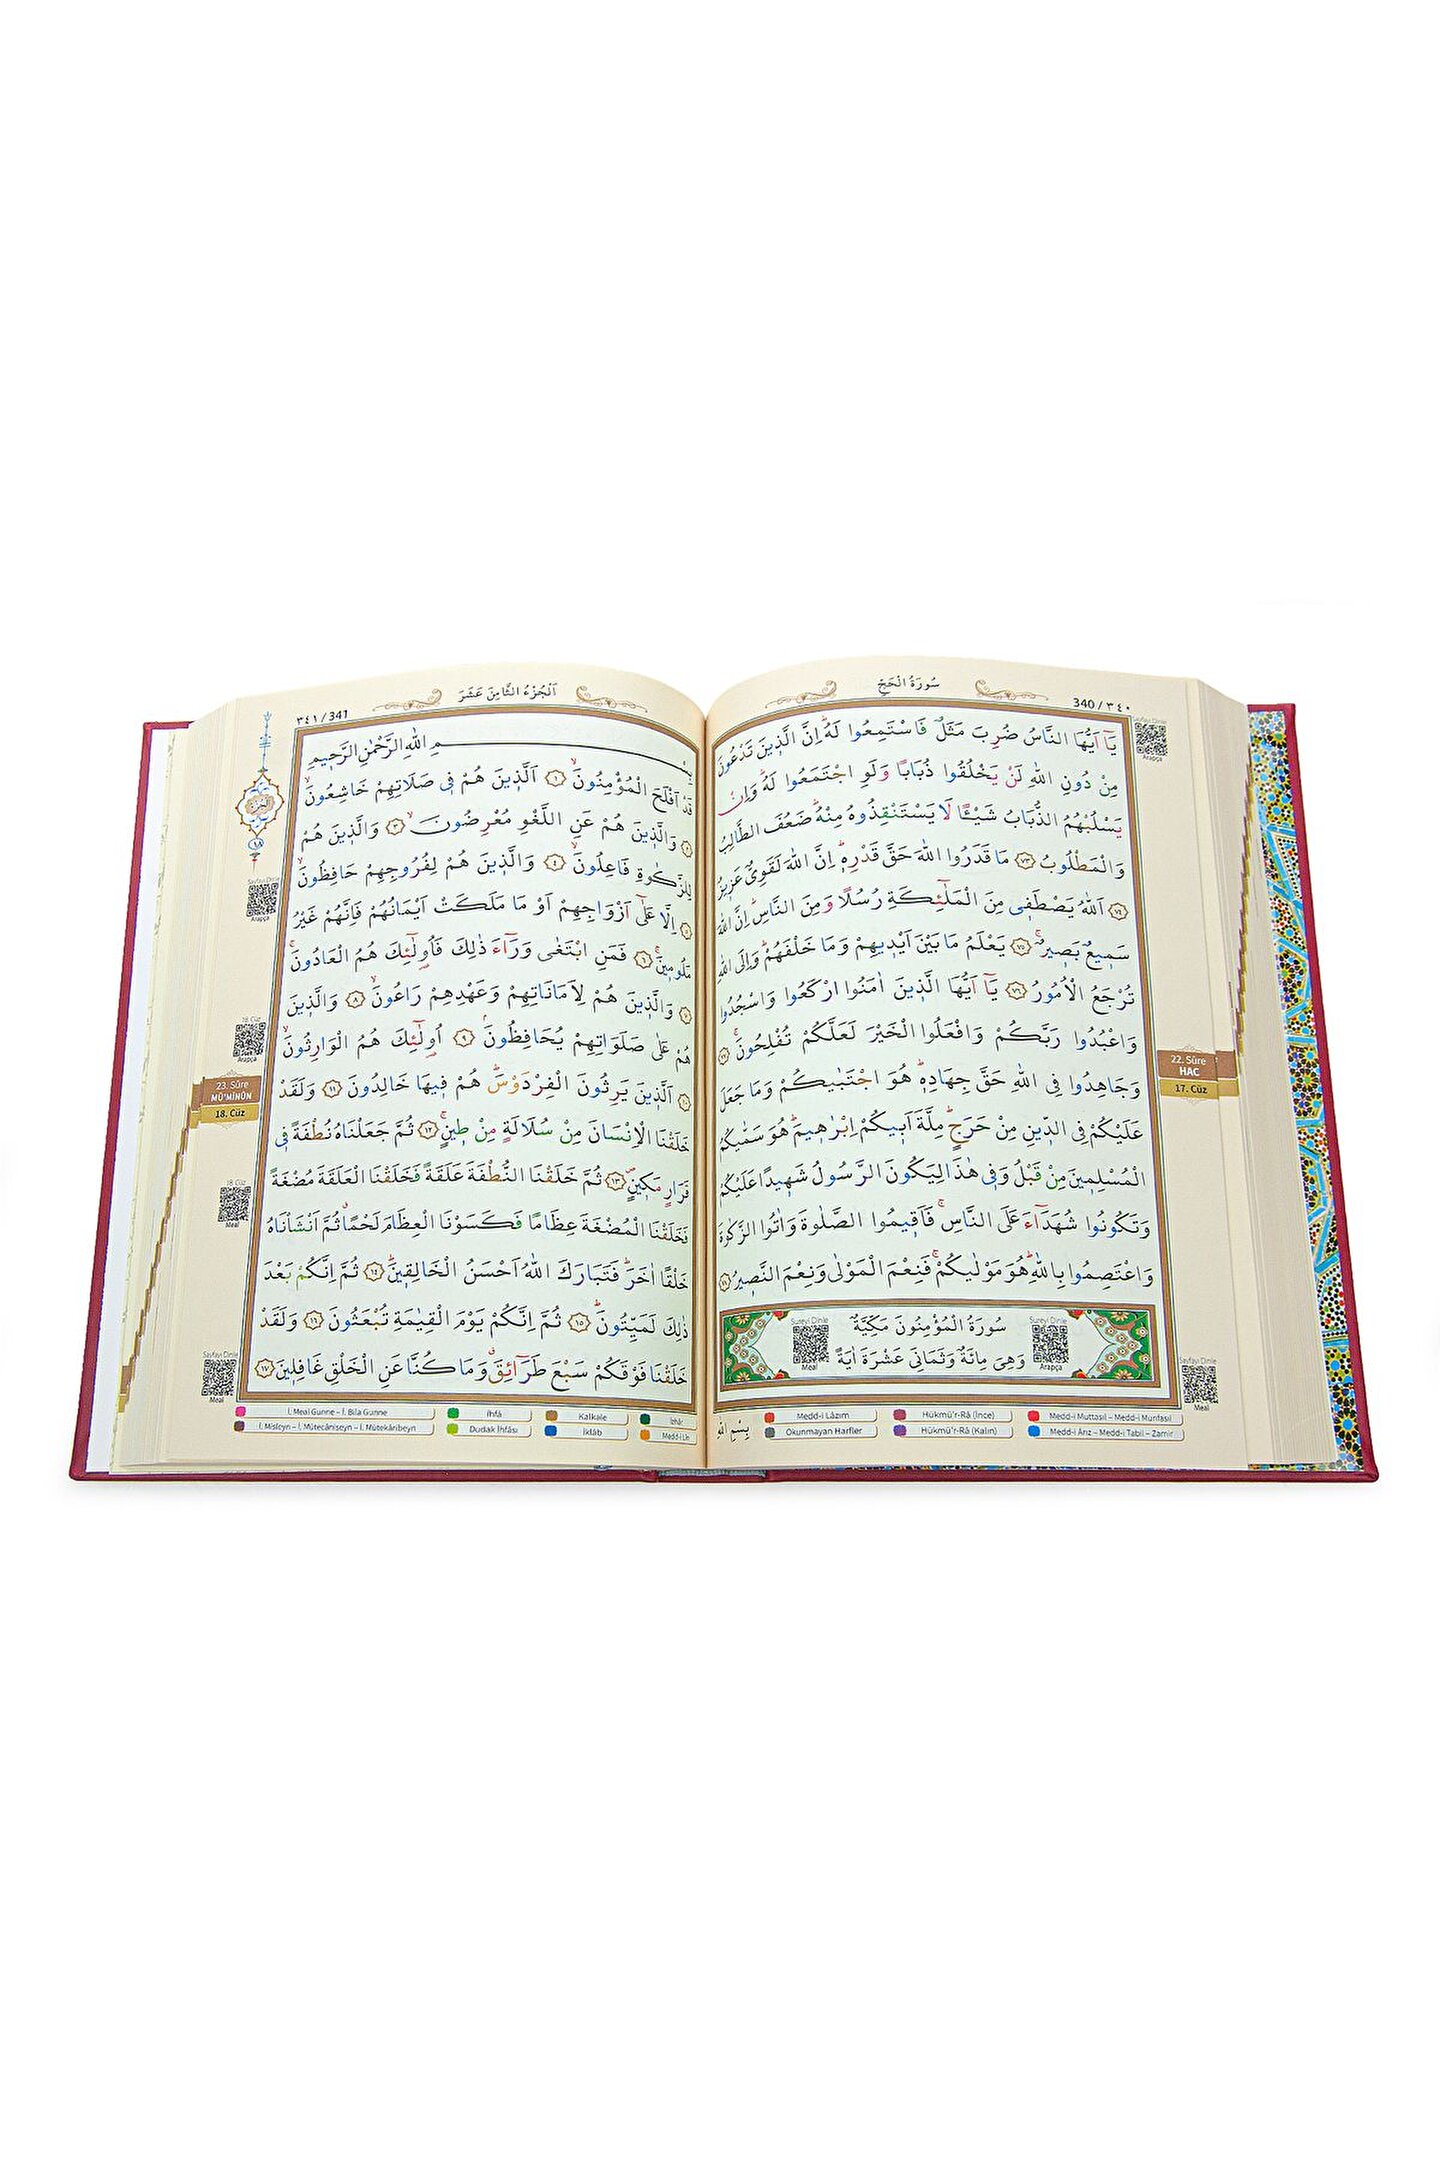 سُورَةُ الْحَجِّ
340 / ٣٤٠
يَٓا اَيُّهَا النَّاسُ ضُرِبَ مَثَلٌ فَاسْتَمِعُوا لَهُؕ اِنَّ الَّذ۪ينَ تَدْعُونَ
مِنْ دُونِ اللّٰهِ لَنْ يَخْلُقُوا ذُبَابًا وَلَوِ اجْتَمَعُوا لَهُؕ وَاِنْ
يَسْلُبْهُمُ الذُّبَابُ شَيْـًٔا لَا يَسْتَنْقِذُوهُ مِنْهُؕ ضَعُفَ الطَّالِبُ
وَالْمَطْلُوبُ ﴿٧٣﴾ مَا قَدَرُوا اللّٰهَ حَقَّ قَدْرِه۪ؕ اِنَّ اللّٰهَ لَقَوِيٌّ عَز۪يزٌ
﴿٧٤﴾ اَللّٰهُ يَصْطَف۪ي مِنَ الْمَلٰٓئِكَةِ رُسُلًا وَمِنَ النَّاسِؕ اِنَّ اللّٰهَ
سَم۪يعٌ بَص۪يرٌۚ ﴿٧٥﴾ يَعْلَمُ مَا بَيْنَ اَيْد۪يهِمْ وَمَا خَلْفَهُمْؕ وَاِلَى اللّٰهِ
تُرْجَعُ الْاُمُورُ ﴿٧٦﴾ يَٓا اَيُّهَا الَّذ۪ينَ اٰمَنُوا ارْكَعُوا وَاسْجُدُوا
وَاعْبُدُوا رَبَّكُمْ وَافْعَلُوا الْخَيْرَ لَعَلَّكُمْ تُفْلِحُونَۚ ﴿٧٧﴾
وَجَاهِدُوا فِي اللّٰهِ حَقَّ جِهَادِه۪ؕ هُوَ اجْتَبٰيكُمْ وَمَا جَعَلَ
عَلَيْكُمْ فِي الدّ۪ينِ مِنْ حَرَجٍؕ مِلَّةَ اَب۪يكُمْ اِبْرٰه۪يمَؕ هُوَ سَمّٰيكُمُ
الْمُسْلِم۪ينَ مِنْ قَبْلُ وَف۪ي هٰذَا لِيَكُونَ الرَّسُولُ شَه۪يدًا عَلَيْكُمْ
وَتَكُونُوا شُهَدَٓاءَ عَلَى النَّاسِۚ فَاَق۪يمُوا الصَّلٰوةَ وَاٰتُوا الزَّكٰوةَ
وَاعْتَصِمُوا بِاللّٰهِؕ هُوَ مَوْلٰيكُمْۚ فَنِعْمَ الْمَوْلٰى وَنِعْمَ النَّص۪يرُ ﴿٧٨﴾
سُورَةُ الْمُؤْمِنُونَ مَكِّيَّةٌ
وَهِيَ مِائَةٌ وَثَمَانِيَ عَشْرَةَ اٰيَةً
Sureyi Dinle
Meal
Sureyi Dinle
Arapça
Sayfayı Dinle
Arapça
22. Sûre
HAC
17. Cüz
Sayfayı Dinle
Meal
بِسْمِ اللّٰهِ
Medd-i Lâzım
Hükmü'r-Râ (İnce)
Medd-i Muttasıl – Medd-i Munfasıl
Okunmayan Harfler
Hükmü'r-Râ (Kalın)
Medd-i Arız – Medd-i Tabiî – Zamir
اَلْجُزْءُ الثَّامِنَ عَشَرَ
٣٤١ / 341
ـمِ اللّٰهِ الرَّحْمٰنِ الرَّح۪يمِ
قَدْ اَفْلَحَ الْمُؤْمِنُونَۙ ﴿١﴾ اَلَّذ۪ينَ هُمْ ف۪ي صَلَاتِهِمْ خَاشِعُونَۙ
﴿٢﴾ وَالَّذ۪ينَ هُمْ عَنِ اللَّغْوِ مُعْرِضُونَۙ ﴿٣﴾ وَالَّذ۪ينَ هُمْ
لِلزَّكٰوةِ فَاعِلُونَۙ ﴿٤﴾ وَالَّذ۪ينَ هُمْ لِفُرُوجِهِمْ حَافِظُونَۙ
﴿٥﴾ اِلَّا عَلٰٓى اَزْوَاجِهِمْ اَوْ مَا مَلَكَتْ اَيْمَانُهُمْ فَاِنَّهُمْ غَيْرُ
مَلُوم۪ينَۚ ﴿٦﴾ فَمَنِ ابْتَغٰى وَرَٓاءَ ذٰلِكَ فَاُو۬لٰٓئِكَ هُمُ الْعَادُونَۚ
﴿٧﴾ وَالَّذ۪ينَ هُمْ لِاَمَانَاتِهِمْ وَعَهْدِهِمْ رَاعُونَۙ ﴿٨﴾ وَالَّذ۪ينَ
هُمْ عَلٰى صَلَوَاتِهِمْ يُحَافِظُونَۢ ﴿٩﴾ اُو۬لٰٓئِكَ هُمُ الْوَارِثُونَۙ
﴿١٠﴾ اَلَّذ۪ينَ يَرِثُونَ الْفِرْدَوْسَؕ هُمْ ف۪يهَا خَالِدُونَ ﴿١١﴾ وَلَقَدْ
خَلَقْنَا الْاِنْسَانَ مِنْ سُلَالَةٍ مِنْ ط۪ينٍۚ ﴿١٢﴾ ثُمَّ جَعَلْنَاهُ نُطْفَةً ف۪ي
قَرَارٍ مَك۪ينٍۖ ﴿١٣﴾ ثُمَّ خَلَقْنَا النُّطْفَةَ عَلَقَةً فَخَلَقْنَا الْعَلَقَةَ مُضْغَةً
فَخَلَقْنَا الْمُضْغَةَ عِظَامًا فَكَسَوْنَا الْعِظَامَ لَحْمًاۗ ثُمَّ اَنْشَأْنَاهُ
خَلْقًا اٰخَرَؕ فَتَبَارَكَ اللّٰهُ اَحْسَنُ الْخَالِق۪ينَؕ ﴿١٤﴾ ثُمَّ اِنَّكُمْ بَعْدَ
ذٰلِكَ لَمَيِّتُونَؕ ﴿١٥﴾ ثُمَّ اِنَّكُمْ يَوْمَ الْقِيٰمَةِ تُبْعَثُونَ ﴿١٦﴾ وَلَقَدْ
خَلَقْنَا فَوْقَكُمْ سَبْعَ طَرَٓائِقَۗ وَمَا كُنَّا عَنِ الْخَلْقِ غَافِل۪ينَ ﴿١٧﴾
١٨
Sayfayı Dinle
Arapça
18. Cüz
Arapça
23. Sûre
MÜ'MİNÛN
18. Cüz
18. Cüz
Meal
Sayfayı Dinle
Meal
İ. Meal Gunne – İ. Bila Gunne
İhfâ
Kalkale
İzhâr
İ. Misleyn – İ. Mütecâniseyn – İ. Mütekâribeyn
Dudak İhfâsı
İklâb
Medd-i Lîn